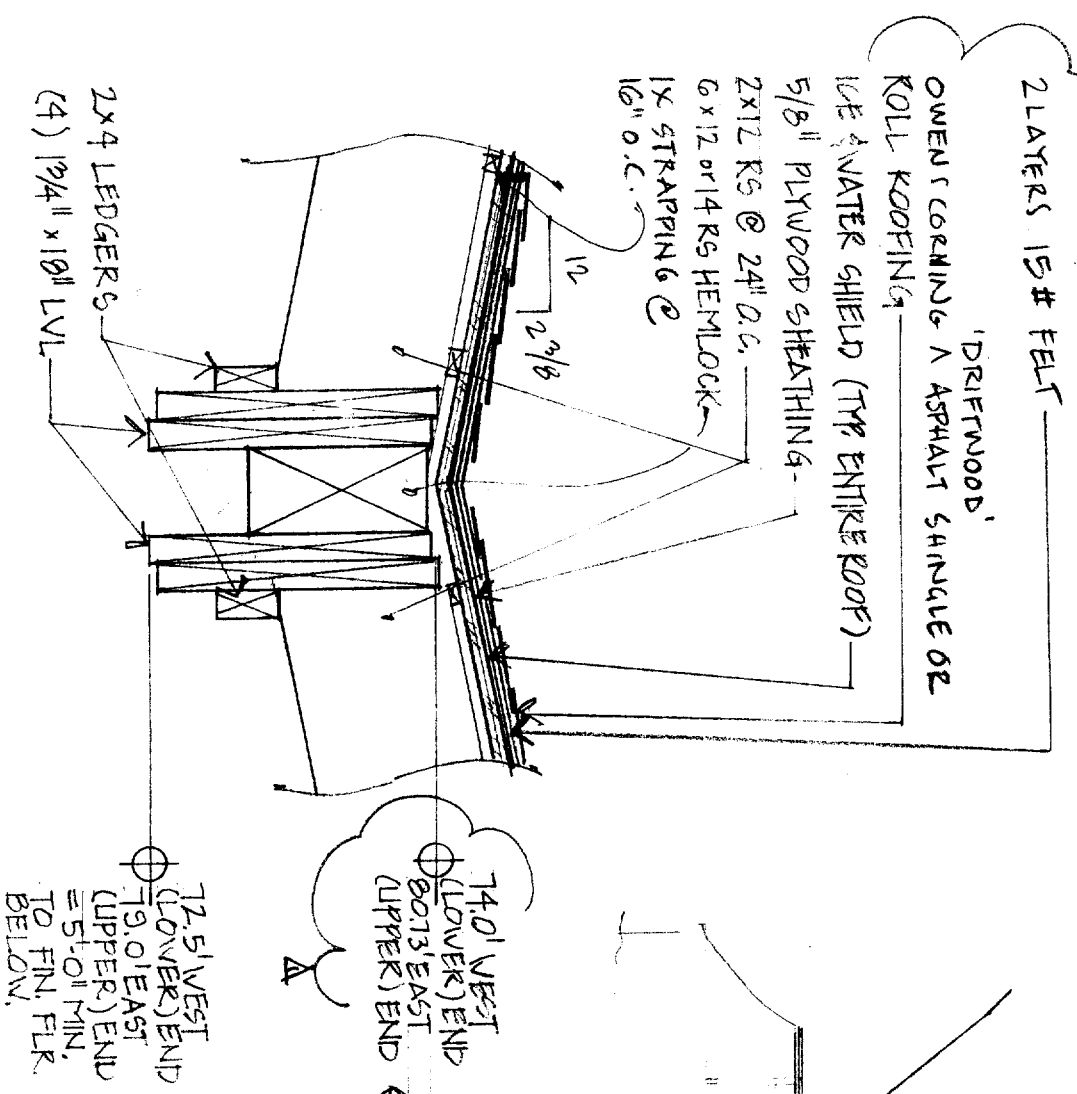 2 LAYERS 15# FELT
'DRIFTWOOD'
OWENS CORNING Λ ASPHALT SHINGLE OR
ROLL ROOFING
ICE & WATER SHIELD (TYP. ENTIRE ROOF)
5/8" PLYWOOD SHEATHING
2X12 RS @ 24" O.C.
6x12 or 14 RS HEMLOCK
1X STRAPPING @
16" O.C.
12
2 3/8
2x4 LEDGERS
(4) 1 3/4" x 18" LVL
74.0' WEST
(LOWER) END
80.73' EAST
(UPPER) END
72.5' WEST
(LOWER) END
79.0' EAST
(UPPER) END
= 5'-0" MIN.
TO FIN. FLR
BELOW.